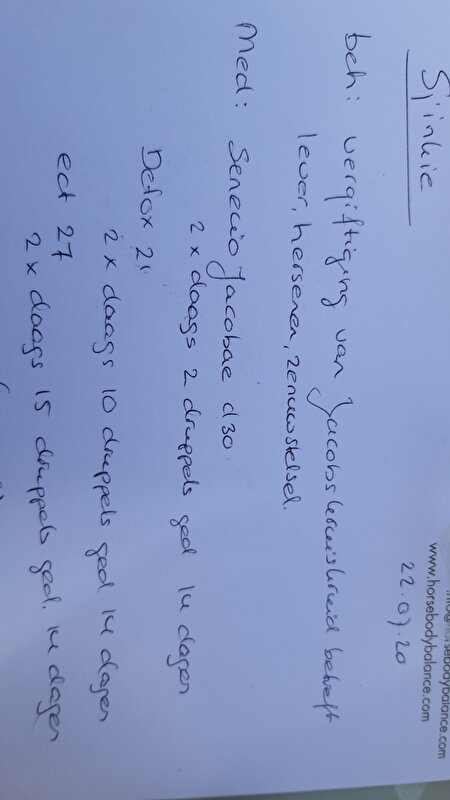 www.horsebodybalance.com
22.07.20
Sjinkie
beh: vergiftiging van Jacobskruiskruid betreft
lever, hersenen, zenuwstelsel.
Med: Senecio Jacobae d30
2 x daags 2 druppels ged 14 dagen
Detox
2 x daags 10 druppels ged 14 dagen
ect 27
2 x daags 15 druppels ged. 14 dagen